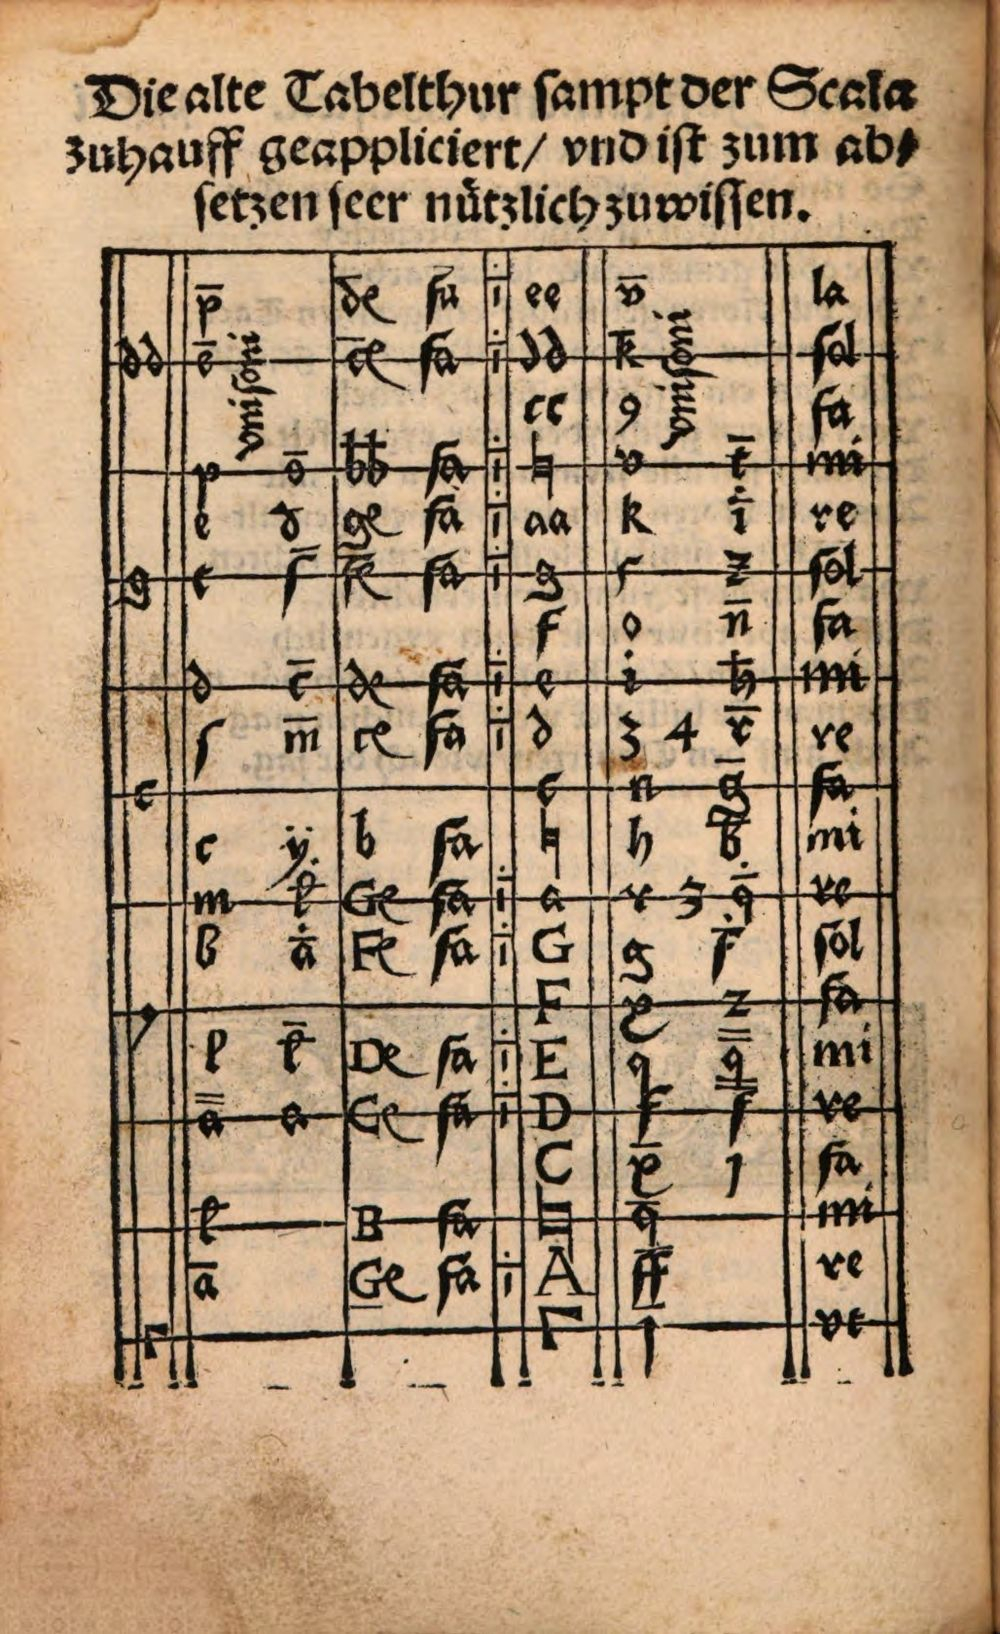 Die alte Tabelthur sampt der Scala
zuhauff geappliciert/ vnd ist zum ab⸗
setzen seer nützlich zuwissen.
p̄ de fa i ee v̄ la
dd ē vnisoni ce fa i dd k̄ vnisoni sol
cc 9 fa
p ō bb fa i ♮ v t̄ mi
e d ge fa i aa k i re
g t s̄ fe fa i g s z̄ sol
f o n̄ fa
d c̄ de fa i e i h̄ mi
s m̄ ce fa i d 3 4 r̄ re
c c n ḡ fa
c ÿ b fa ♮ h b̄ mi
m l̄ Ge fa i a r 3 q̄ re
b ā Fe fa i G g f̄ sol
F z fa
l l̄ De fa i E q q̄ mi
a a Ge fa i D f f re
C 1 fa
l B fa ♮ q̄ mi
ā Ge fa i A ff re
Γ Γ vt